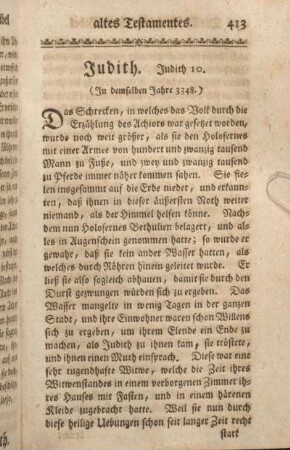 altes Testamentes. 413
Judith. Judith 10.
(In demselben Jahre 3348.)
Das Schrecken, in welches das Volk durch die
Erzählung des Achiors war gesetzet worden,
wurde noch weit größer, als sie den Holofernes
mit einer Armee von hundert und zwanzig tausend
Mann zu Fuße, und zwey und zwanzig tausend
zu Pferde immer näher kommen sahen. Sie fie-
len insgesammt auf die Erde nieder, und erkann-
ten, daß ihnen in dieser äußersten Noth weiter
niemand, als der Himmel helfen könne. Nach-
dem nun Holofernes Bethulien belagert, und al-
les in Augenschein genommen hatte; so wurde er
gewahr, daß sie kein ander Wasser hatten, als
welches durch Röhren hinein geleitet wurde. Er
ließ sie also sogleich abhauen, damit sie durch den
Durst gezwungen würden sich zu ergeben. Das
Wasser mangelte in wenig Tagen in der ganzen
Stadt, und ihre Einwohner waren schon Willens
sich zu ergeben, um ihrem Elende ein Ende zu
machen, als Judith zu ihnen kam, sie tröstete,
und ihnen einen Muth einsprach. Diese war eine
sehr tugendhafte Witwe, welche die Zeit ihres
Witwenstandes in einem verborgenen Zimmer ih-
res Hauses mit Fasten, und in einem härenen
Kleide zugebracht hatte. Weil sie nun durch
diese heilige Uebungen schon seit langer Zeit recht
stark